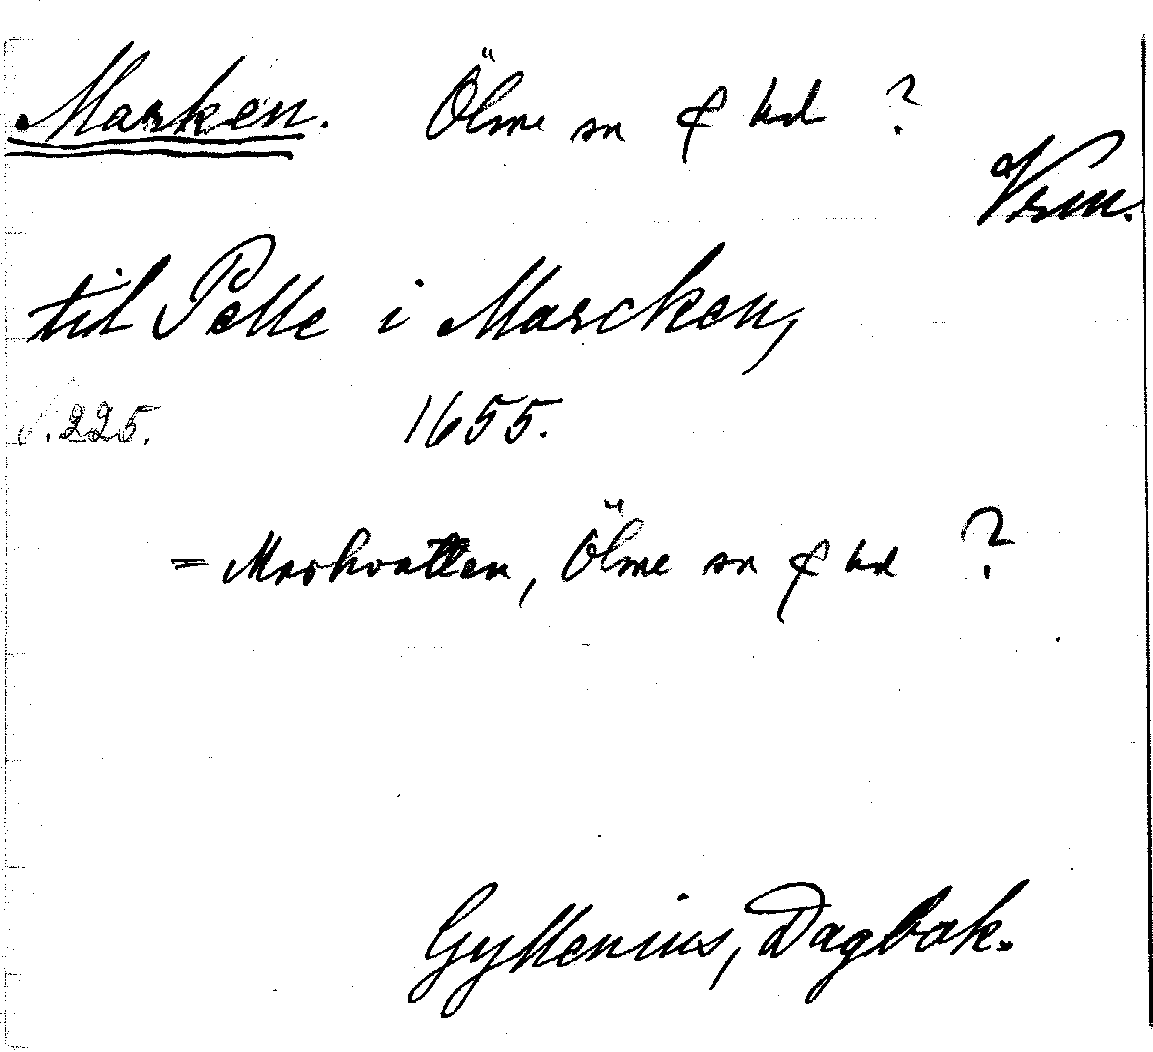 Marken. Ölme sn o hd ?
Vrm.
til Pelle i Marcken,
S. 225. 1655.
= Markvatten, Ölme sn o hd ?
Gyllenius, Dagbok.